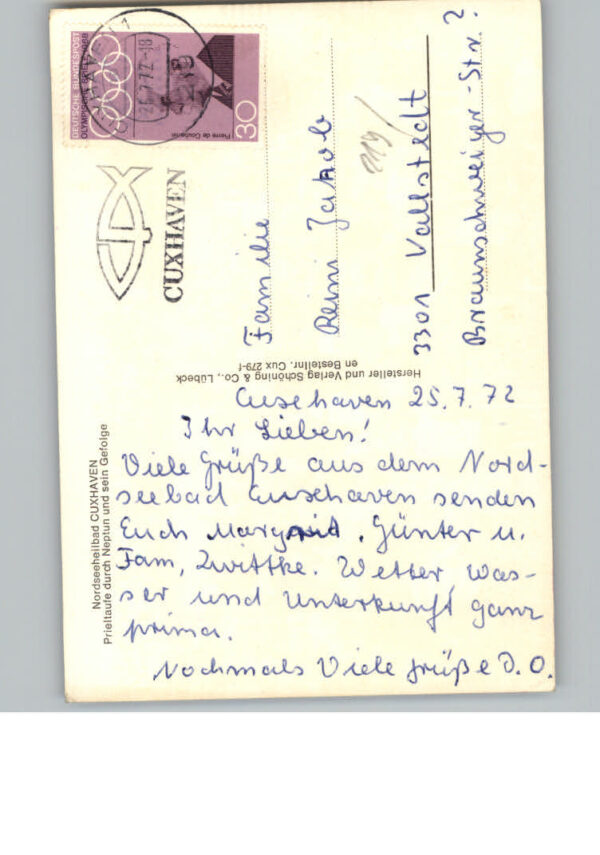 DEUTSCHE BUNDESPOST
OLYMPISCHE SPIELE 1968
Pierre de Coubertin
30
CUXHAVEN 1
26.7.72-18
CUXHAVEN
Familie
Reini Jakob
3301 Vallstedt
Braunschweiger-Str. 2
119/
Hersteller und Verlag Schöning & Co., Lübeck
en Bestellnr. Cux 279-f
Nordseeheilbad CUXHAVEN
Prieltaufe durch Neptun und sein Gefolge
Cuxhaven 25.7.72
Ihr Lieben!
Viele Grüße aus dem Nord-
seebad Cuxhaven senden
Euch Margrit, Günter u.
Fam, Zwittke. Wetter, was-
ser und Unterkunft ganz
prima.
Nochmals Viele Grüße D. O.